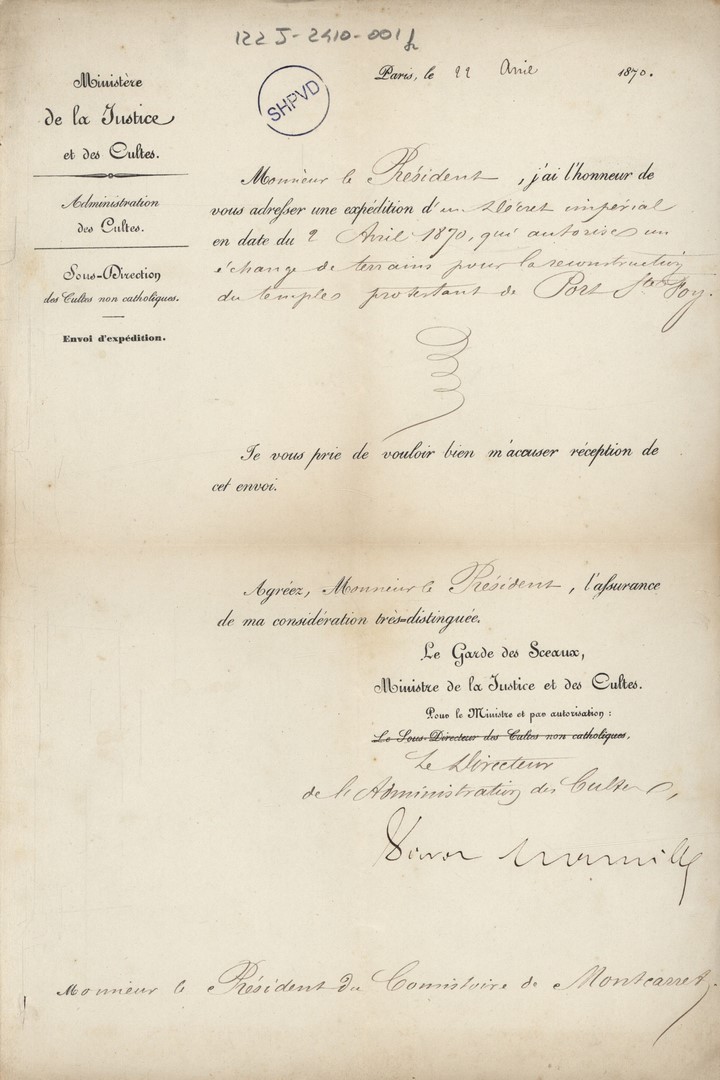 122 J-2410-001
SHPVD
Ministère
de la Justice
et des Cultes.
Administration
des Cultes.
Sous-Direction
des Cultes non catholiques.
Envoi d'expédition.
Paris, le 22 Avril 1870.
Monsieur le Président, j'ai l'honneur de
vous adresser une expédition d'un Décret impérial
en date du 2 Avril 1870, qui autorise un
échange de terrains pour la reconstruction
du temple protestant de Port Ste Foy.
Je vous prie de vouloir bien m'accuser réception de
cet envoi.
Agréez, Monsieur le Président, l'assurance
de ma considération très-distinguée.
Le Garde des Sceaux,
Ministre de la Justice et des Cultes.
Pour le Ministre et par autorisation :
Le Sous-Directeur des Cultes non catholiques,
Le Directeur
de l'Administration des Cultes,
Monsieur le Président du Consistoire de Montcarret.